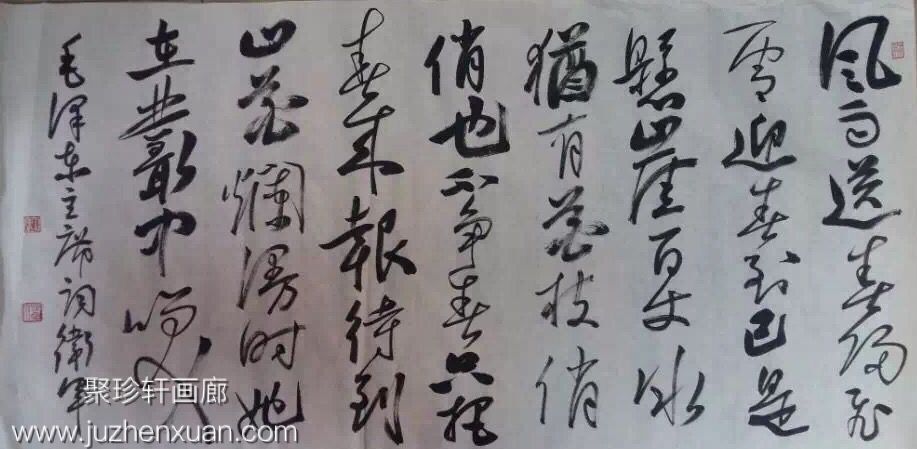 风雨送春归飞
雪迎春到已是
懸崖百丈冰
猶有花枝俏
俏也不争春只把
春来報待到
山花爛漫时她
在叢中笑
毛泽东主席词衛军
聚珍轩画廊
www.juzhenxuan.com